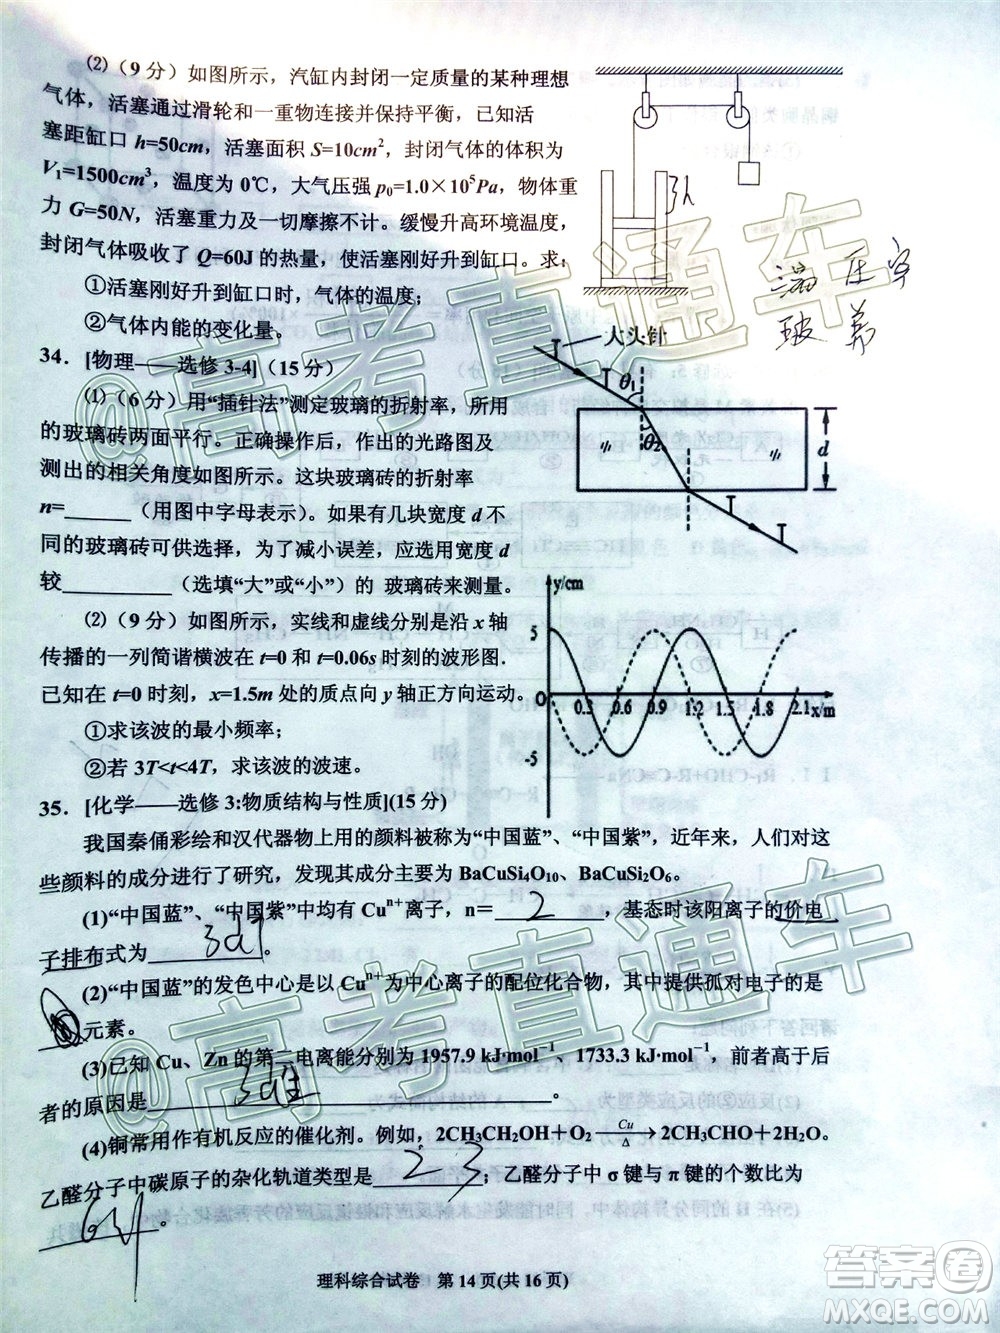 (2)(9分)如图所示,汽缸内封闭一定质量的某种理想
气体,活塞通过滑轮和一重物连接并保持平衡,已知活
塞距缸口 h=50cm,活塞面积 S=10cm²,封闭气体的体积为
V₁=1500cm³,温度为 0℃,大气压强 p₀=1.0×10⁵Pa,物体重
力 G=50N,活塞重力及一切摩擦不计。缓慢升高环境温度,
封闭气体吸收了 Q=60J 的热量,使活塞刚好升到缸口。求:
①活塞刚好升到缸口时,气体的温度;
②气体内能的变化量。
34. [物理——选修 3-4](15 分)
(1)(6 分)用“插针法”测定玻璃的折射率,所用
的玻璃砖两面平行。正确操作后,作出的光路图及
测出的相关角度如图所示。这块玻璃砖的折射率
n=______(用图中字母表示)。如果有几块宽度 d 不
同的玻璃砖可供选择,为了减小误差,应选用宽度 d
较________(选填“大”或“小”)的 玻璃砖来测量。
大头针
θ₁
θ₂
d
(2)(9 分)如图所示,实线和虚线分别是沿 x 轴
传播的一列简谐横波在 t=0 和 t=0.06s 时刻的波形图.
已知在 t=0 时刻,x=1.5m 处的质点向 y 轴正方向运动。
①求该波的最小频率;
②若 3T<t<4T,求该波的波速。
y/cm
5
0
-5
0.3 0.6 0.9 1.2 1.5 1.8 2.1 x/m
35. [化学——选修 3:物质结构与性质](15 分)
我国秦俑彩绘和汉代器物上用的颜料被称为“中国蓝”、“中国紫”,近年来,人们对这
些颜料的成分进行了研究,发现其成分主要为 BaCuSi₄O₁₀、BaCuSi₂O₆。
(1)“中国蓝”、“中国紫”中均有 Cuⁿ⁺离子,n=__2__,基态时该阳离子的价电
子排布式为______。
(2)“中国蓝”的发色中心是以 Cuⁿ⁺为中心离子的配位化合物,其中提供孤对电子的是
____元素。
(3)已知 Cu、Zn 的第二电离能分别为 1957.9 kJ·mol⁻¹、1733.3 kJ·mol⁻¹,前者高于后
者的原因是________________。
(4)铜常用作有机反应的催化剂。例如,2CH₃CH₂OH+O₂ —Cu/Δ→ 2CH₃CHO+2H₂O。
乙醛分子中碳原子的杂化轨道类型是________;乙醛分子中 σ 键与 π 键的个数比为
______。
理科综合试卷 第 14 页(共 16 页)
@高考直通车
@高考直通车
答案圈
MXQE.COM